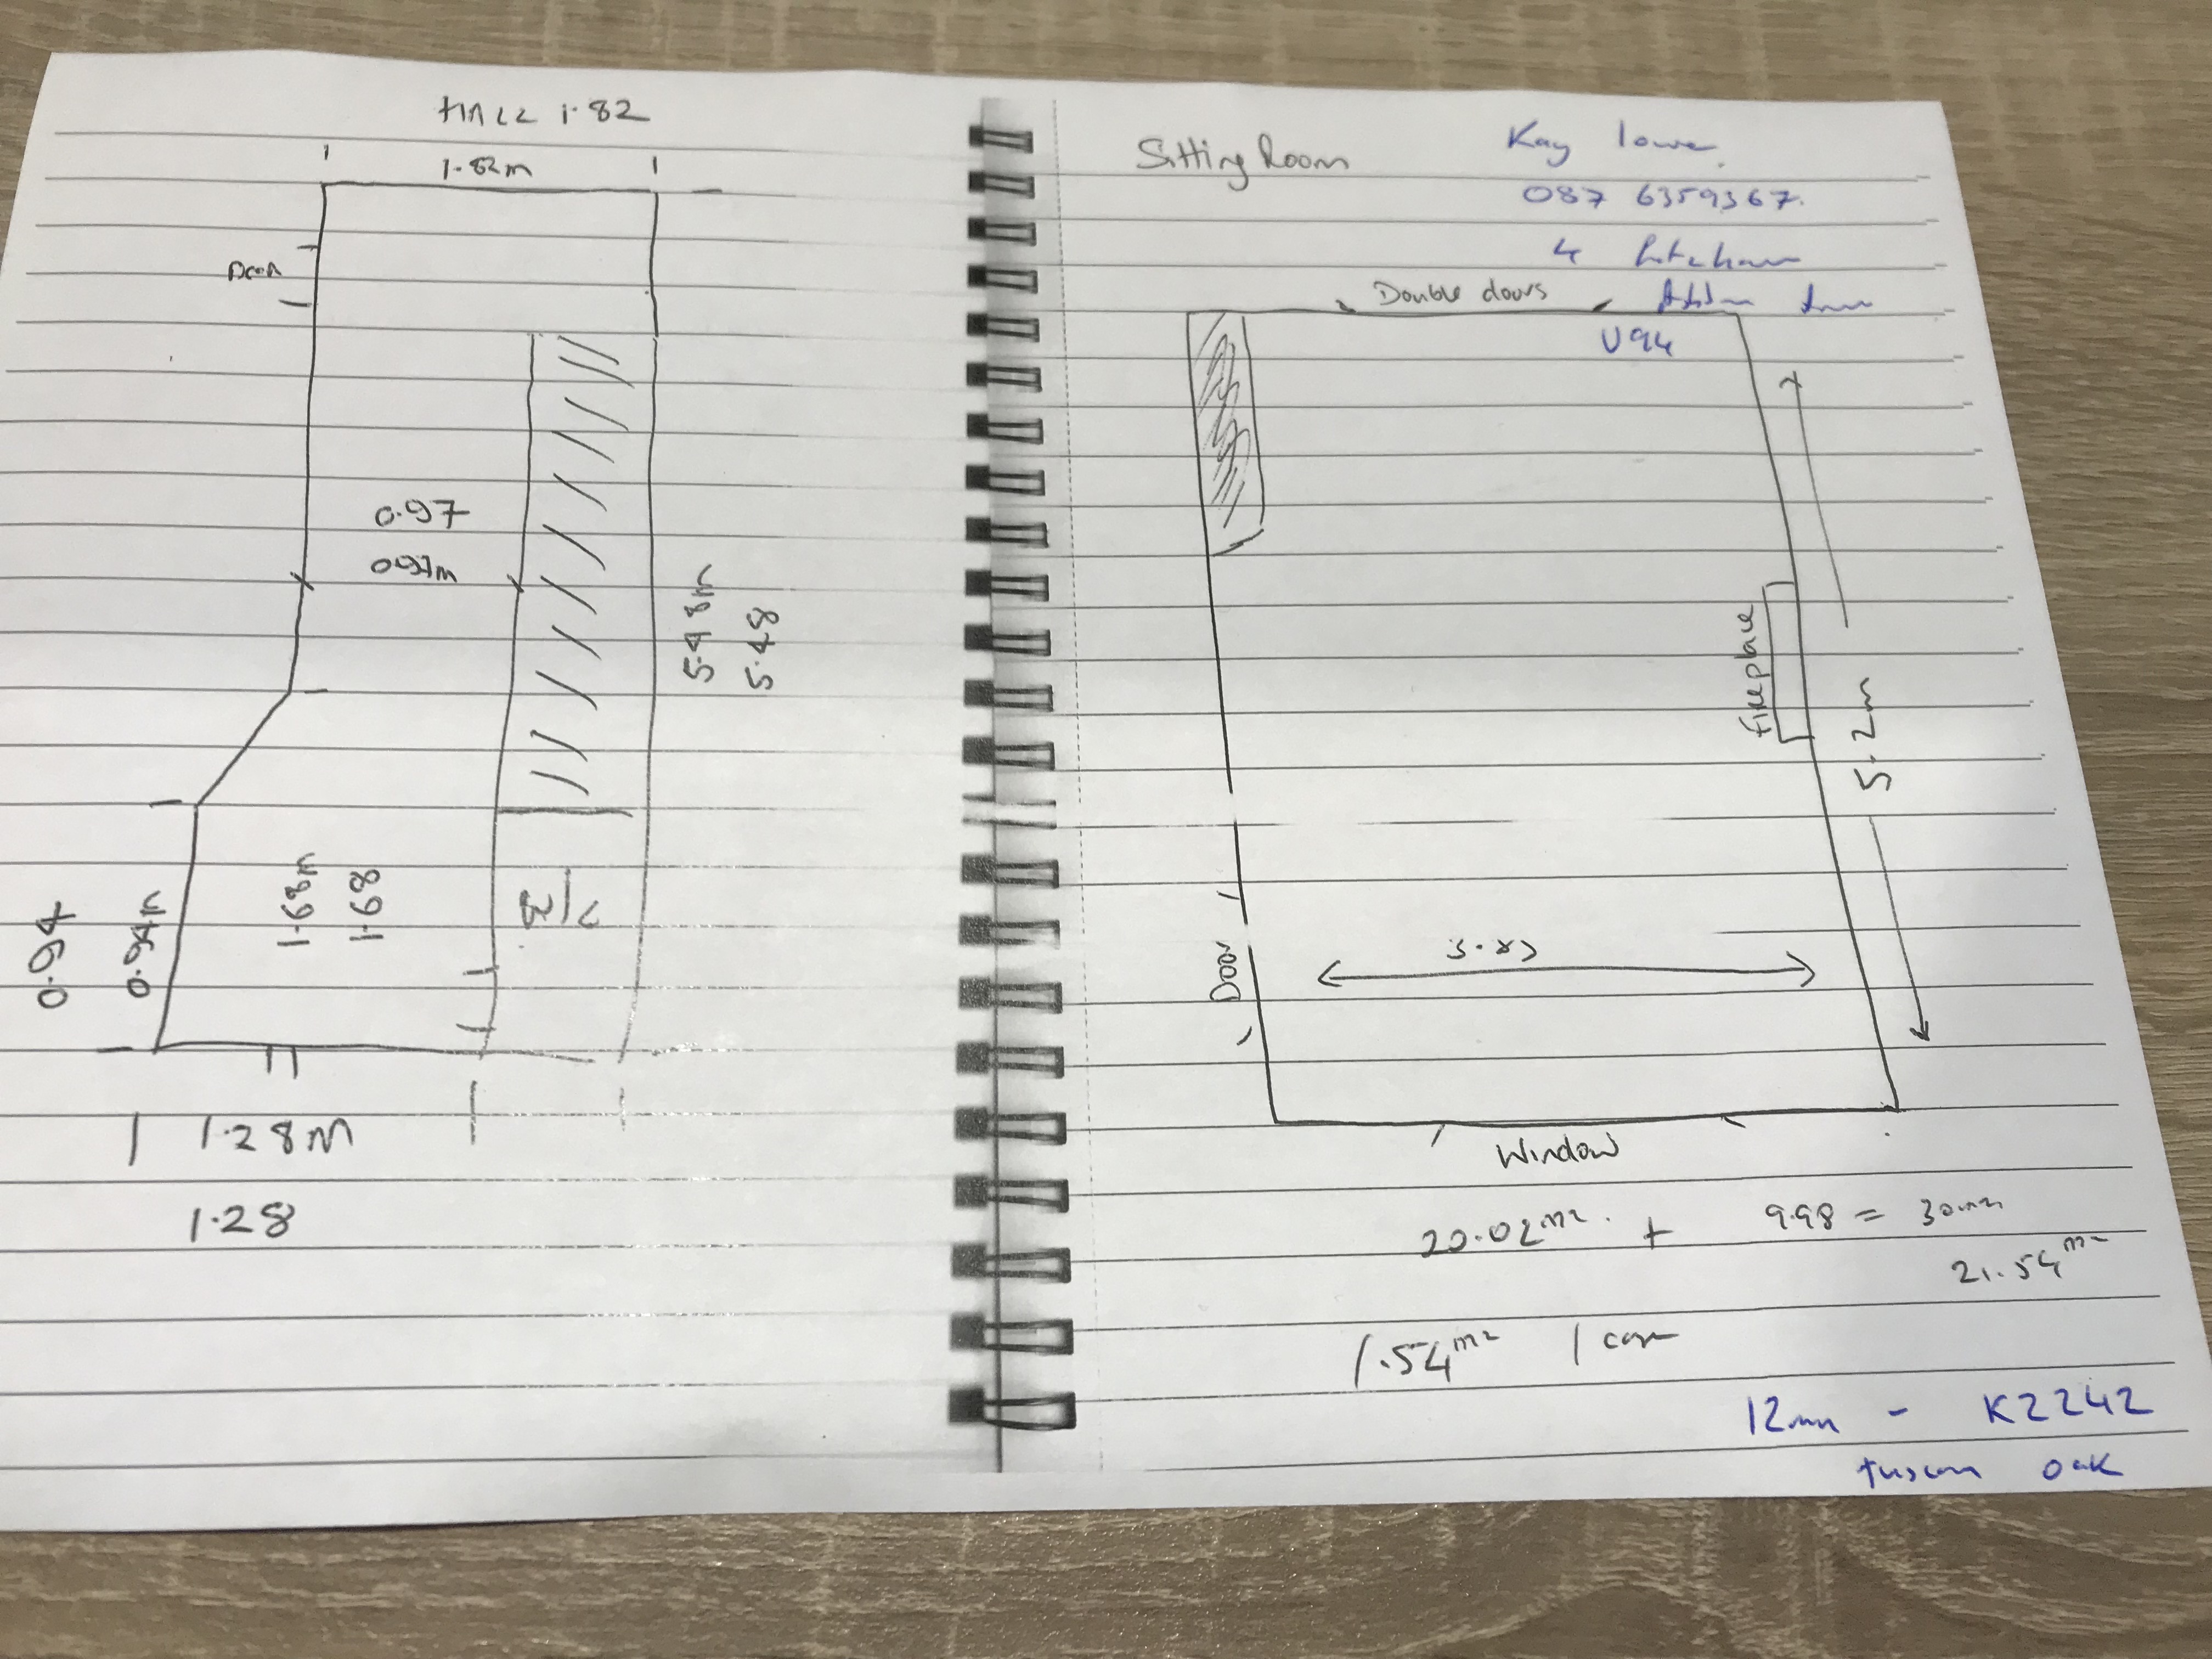 HALL 1.82
1.82m
Door
0.97
0.97m
5.48m
5.48
1.68m
1.68
0.94
0.94m
W/C
1.28M
1.28
Sitting Room
Kay lowe
087 6359367.
4
Double doors
V94
Fireplace
5.2m
Door
Window
20.02m². + 9.98 = 30m²
21.54m²
1.54m² 1
12mm - K2242
tuscan oak